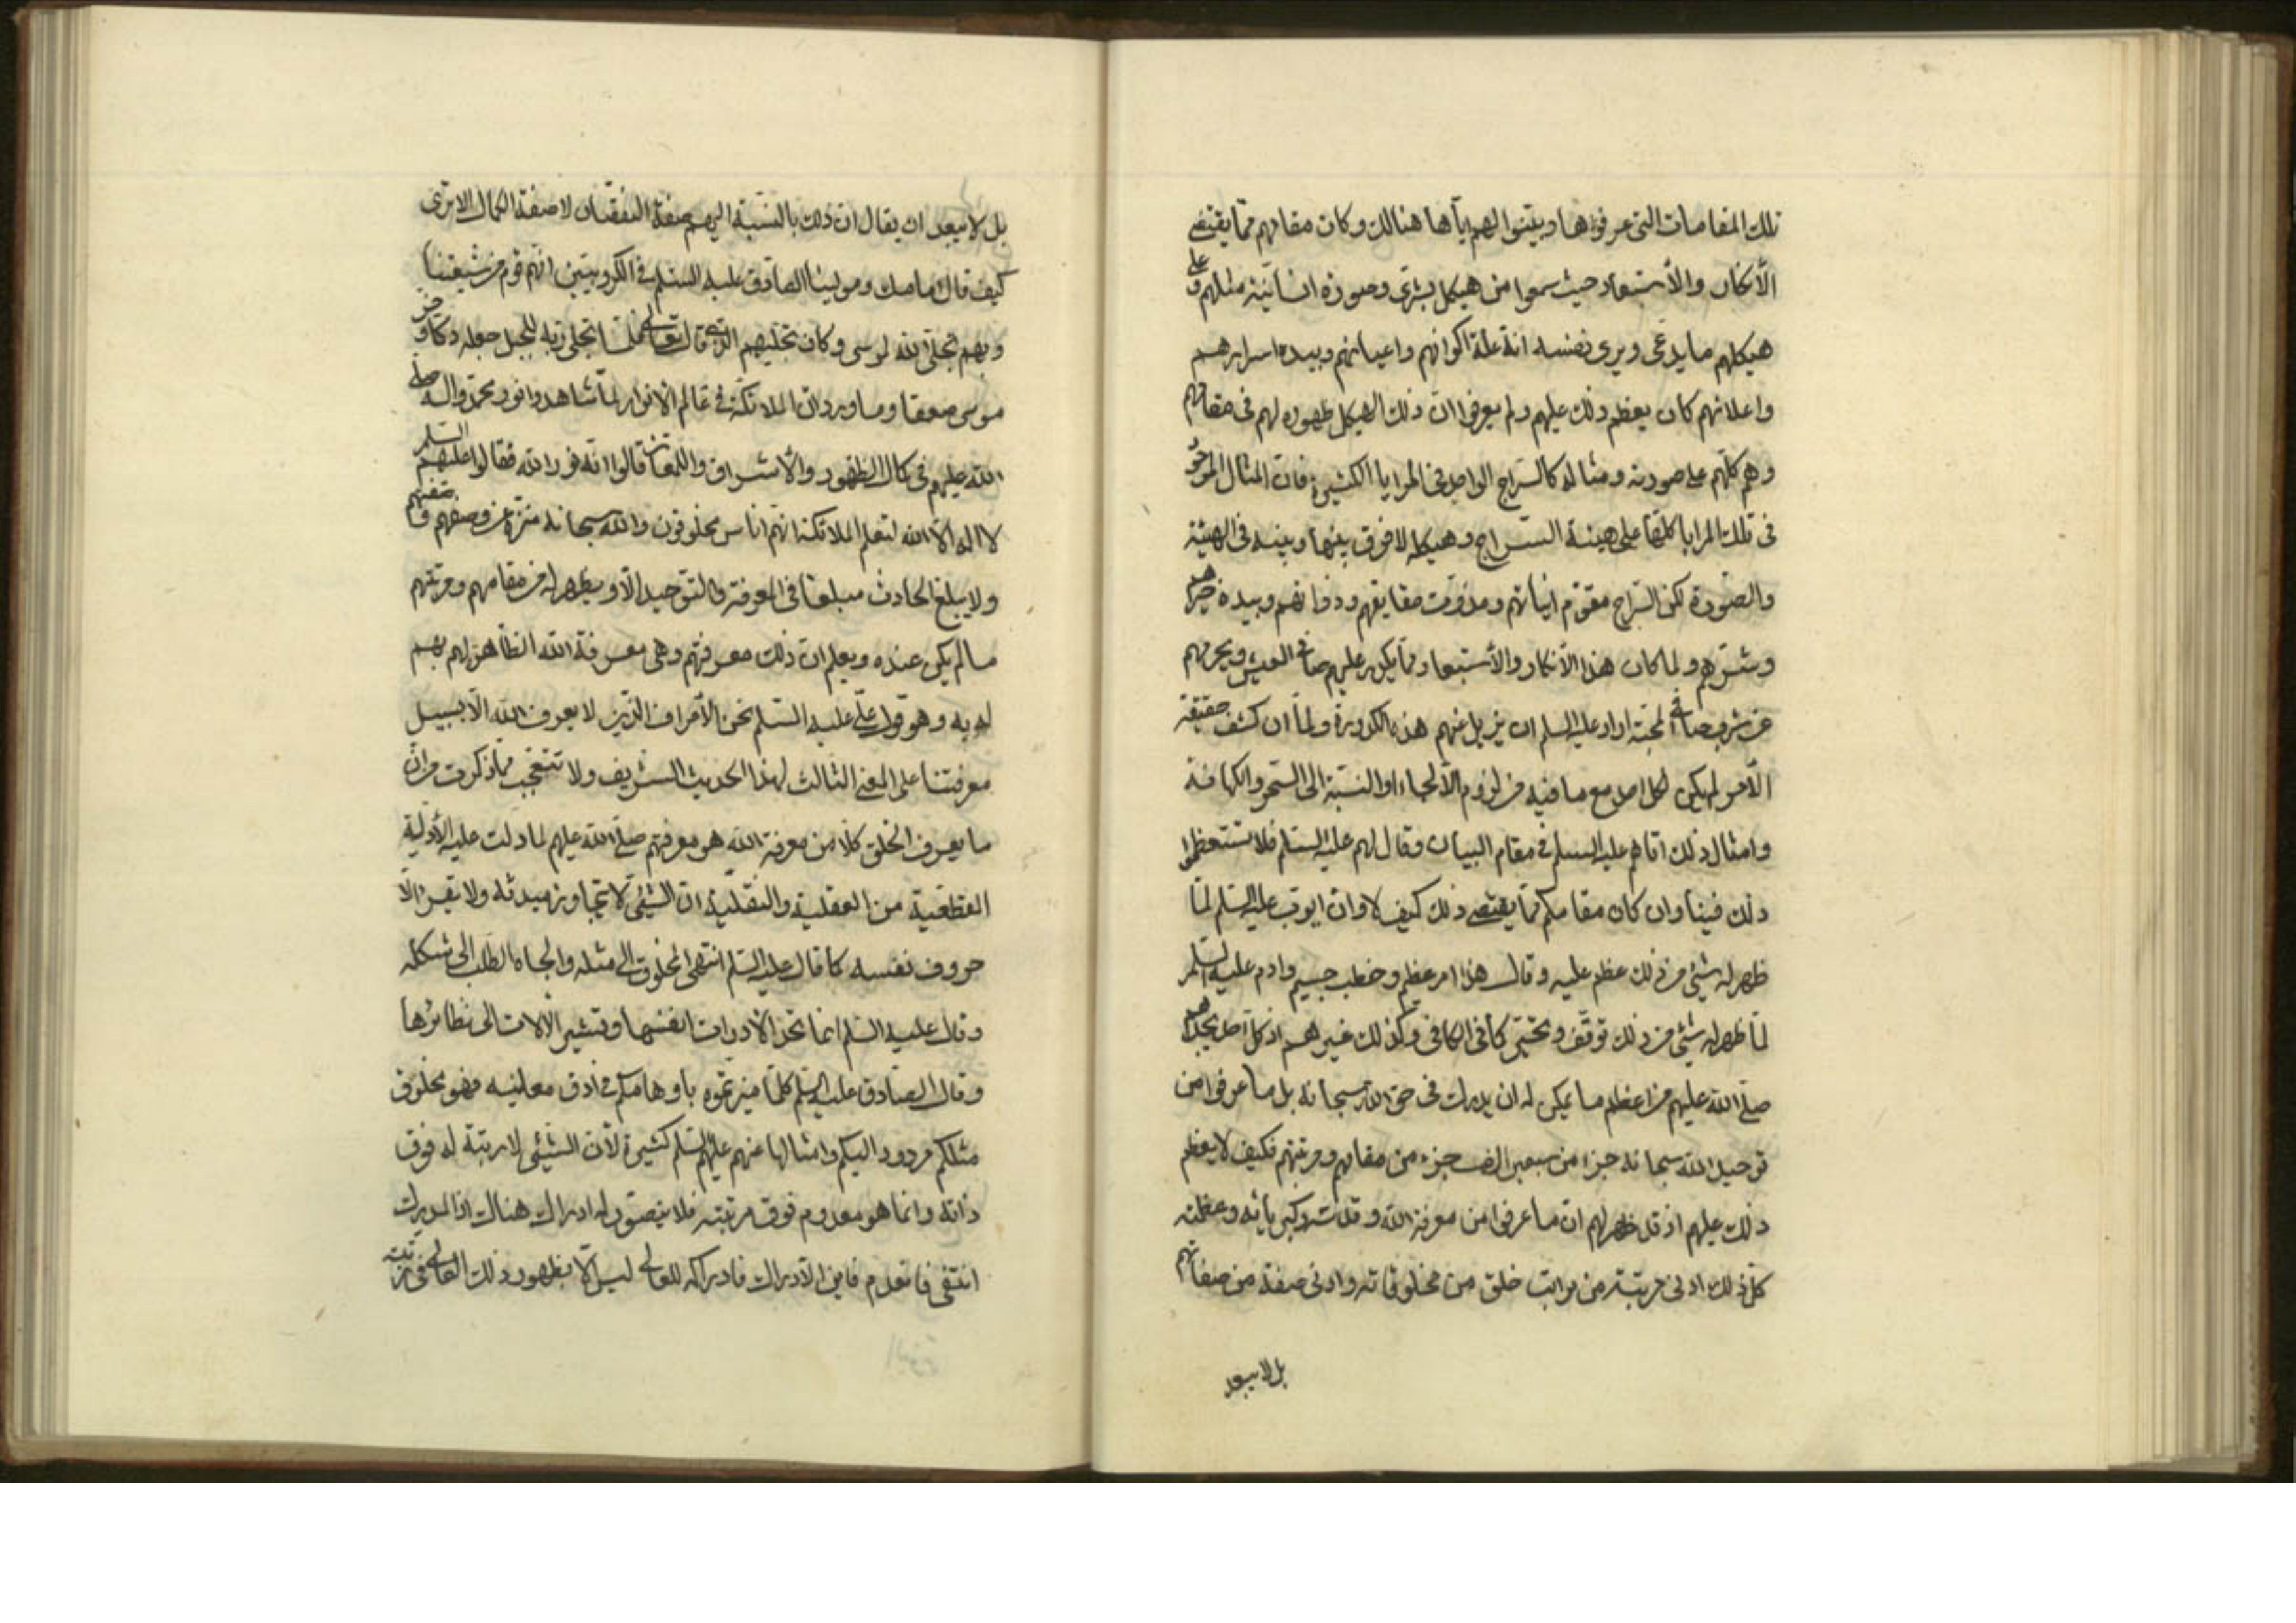 تلك المقامات التى عرفوها وبيّنوا لهم اياها هنالك وكان مقامهم ممّا يقتضى
الأنكار والأستبعاد حيث سمعوا من هيكل بشرّى وصورة انسانيّة مثلهم وعلى
هيكلهم ما يدعى ويرى نفسه انه علة اكوانهم واعيانهم وبيده اسرارهم
واعلانهم كان يعظم ذلك عليهم ولم يعرفوا انّ ذلك الهيكل ظهوره لهم فى مقامهم
وهم كلّهم على صورته ومثاله كالسّراج الواحد فى المرايا الكثيرة فان المثال الموجود
فى تلك المرايا كلّها على هيئة السّراج وهيكله لا فرق بينها وبينه فى الهيئة
والصّورة لكن السّراج مقوّم انياتهم ومذوّت حقايقهم وذواتهم وبيده خيرهم
وشرّهم ولما كان هذا الأنكار والأستبعاد ممّا يكدر عليهم صافى العيش ويحرمهم
عن شرب صافى المحبّة اراد عليه السلم ان يزيل عنهم هذه الكدورة ولمّا ان كشف حقيقة
الأمر لم يكن لكل احد مع ما فيه من لزوم الألجاء او النسّبة الى السّحر والكهانة
وامثال ذلك اتاهم عليه السلم فى مقام البيان وقال لهم عليه السّلم فلا تستعظموا
ذلك فينا وان كان مقامكم ممّا يقتضى ذلك كيف لا وان ايوّب عليه السّلم لمّا
ظهر له شيئى من ذلك عظم عليه وقال هذا امر عظيم وخطب جسيم وادم عليه السّلم
لمّا ظهر له شيئى من ذلك توقّف وتحيّر كما فى الكافى وكذلك غيرهم اذ كلّ احد يجدهم
صلّى الله عليهم من اعظم ما يمكن له ان يدرك فى حق الله سبحانه بل ما عرفوا من
توحيد الله سبحانه جزء من سبعين الف جزء من مقامهم ومرتبتهم فكيف لا يعظم
ذلك عليهم اذ قد ظهر لهم ان ما عرفوا من معرفة الله وقدرته وكبريائه وعظمته
كلّ ذلك ادنى مرتبة من مراتب خلق من مخلوقاته وادنى صفة من صفاتهم
بل لا يبعد
بل لا يبعد ان يقال ان ذلك بالنسّبة اليهم صفة النقصان لا صفة الكمال الا ترى
كيف قال امامك ومولينا الصّادق عليه السّلم فى الكروبيّين انّهم قوم من شيعتنا
وبهم تجلّى الله لموسى وكان تجليهم الذى قال تعالى فلمّا تجلى ربّه للجبل جعله دكا وخرّ
موسى صعقا وما ورد ان الملائكة فى عالم الأنوار لمّا شاهدوا نور محمّد واله صلّى
الله عليهم فى كمال الظهور والأشراق واللمعان قالوا انه نور الله فقالوا عليهم السّلم
لا اله الّا الله لتعلم الملائكة انهم اناس مخلوقون والله سبحانه منزّه عن وصفهم وصفتهم
ولا يبلغ الحادث مبلغا فى المعرفة والتوحيد الّا ويظهر له من مقامهم ومرتبتهم
ما لم يكن عنده ويعلم ان ذلك معرفتهم وهى معرفة الله الظّاهر لهم بهم
له به وهو قول علّى عليه السّلم نحن الأعراف الذّين لا يعرف الله الّا بسبيل
معرفتنا على المعنى الثالث لهذا الحديث الشريف ولا تتعجّب ممّا ذكرت من انّ
ما يعرف الخلق كلّا من معرفة الله هو معرفتهم صلّى الله عليهم لما دلت عليه الأدلّية
القطعية من العقلية والنقلّية انّ الشّيئى لا يتجاوز مبدئه ولا يقرء الّا
حروف نفسه كما قال عليه السّلم انتهى المخلوق الى مثله والجاه الطّلب الى شكله
وقال عليه السّلم انما تحدّ الأدوات انفسها وتشير الألات الى نظائرها
وقال الصّادق عليه السّلم كلّما ميزتموه باوهامكم فى ادق معانيه فهو مخلوق
مثلكم مردود اليكم وامثالها عنهم عليهم السّلم كثيرة لأن الشّيئى لا رتبة له فوق
ذاته وانما هو معدوم فوق مرتبته فلا يتصّور له ادراك هناك اذ المدرك
انتفى فانعدم فاين الأدراك فادراكه للعالى ليس الّا بظهور ذلك العالى فى رتبته